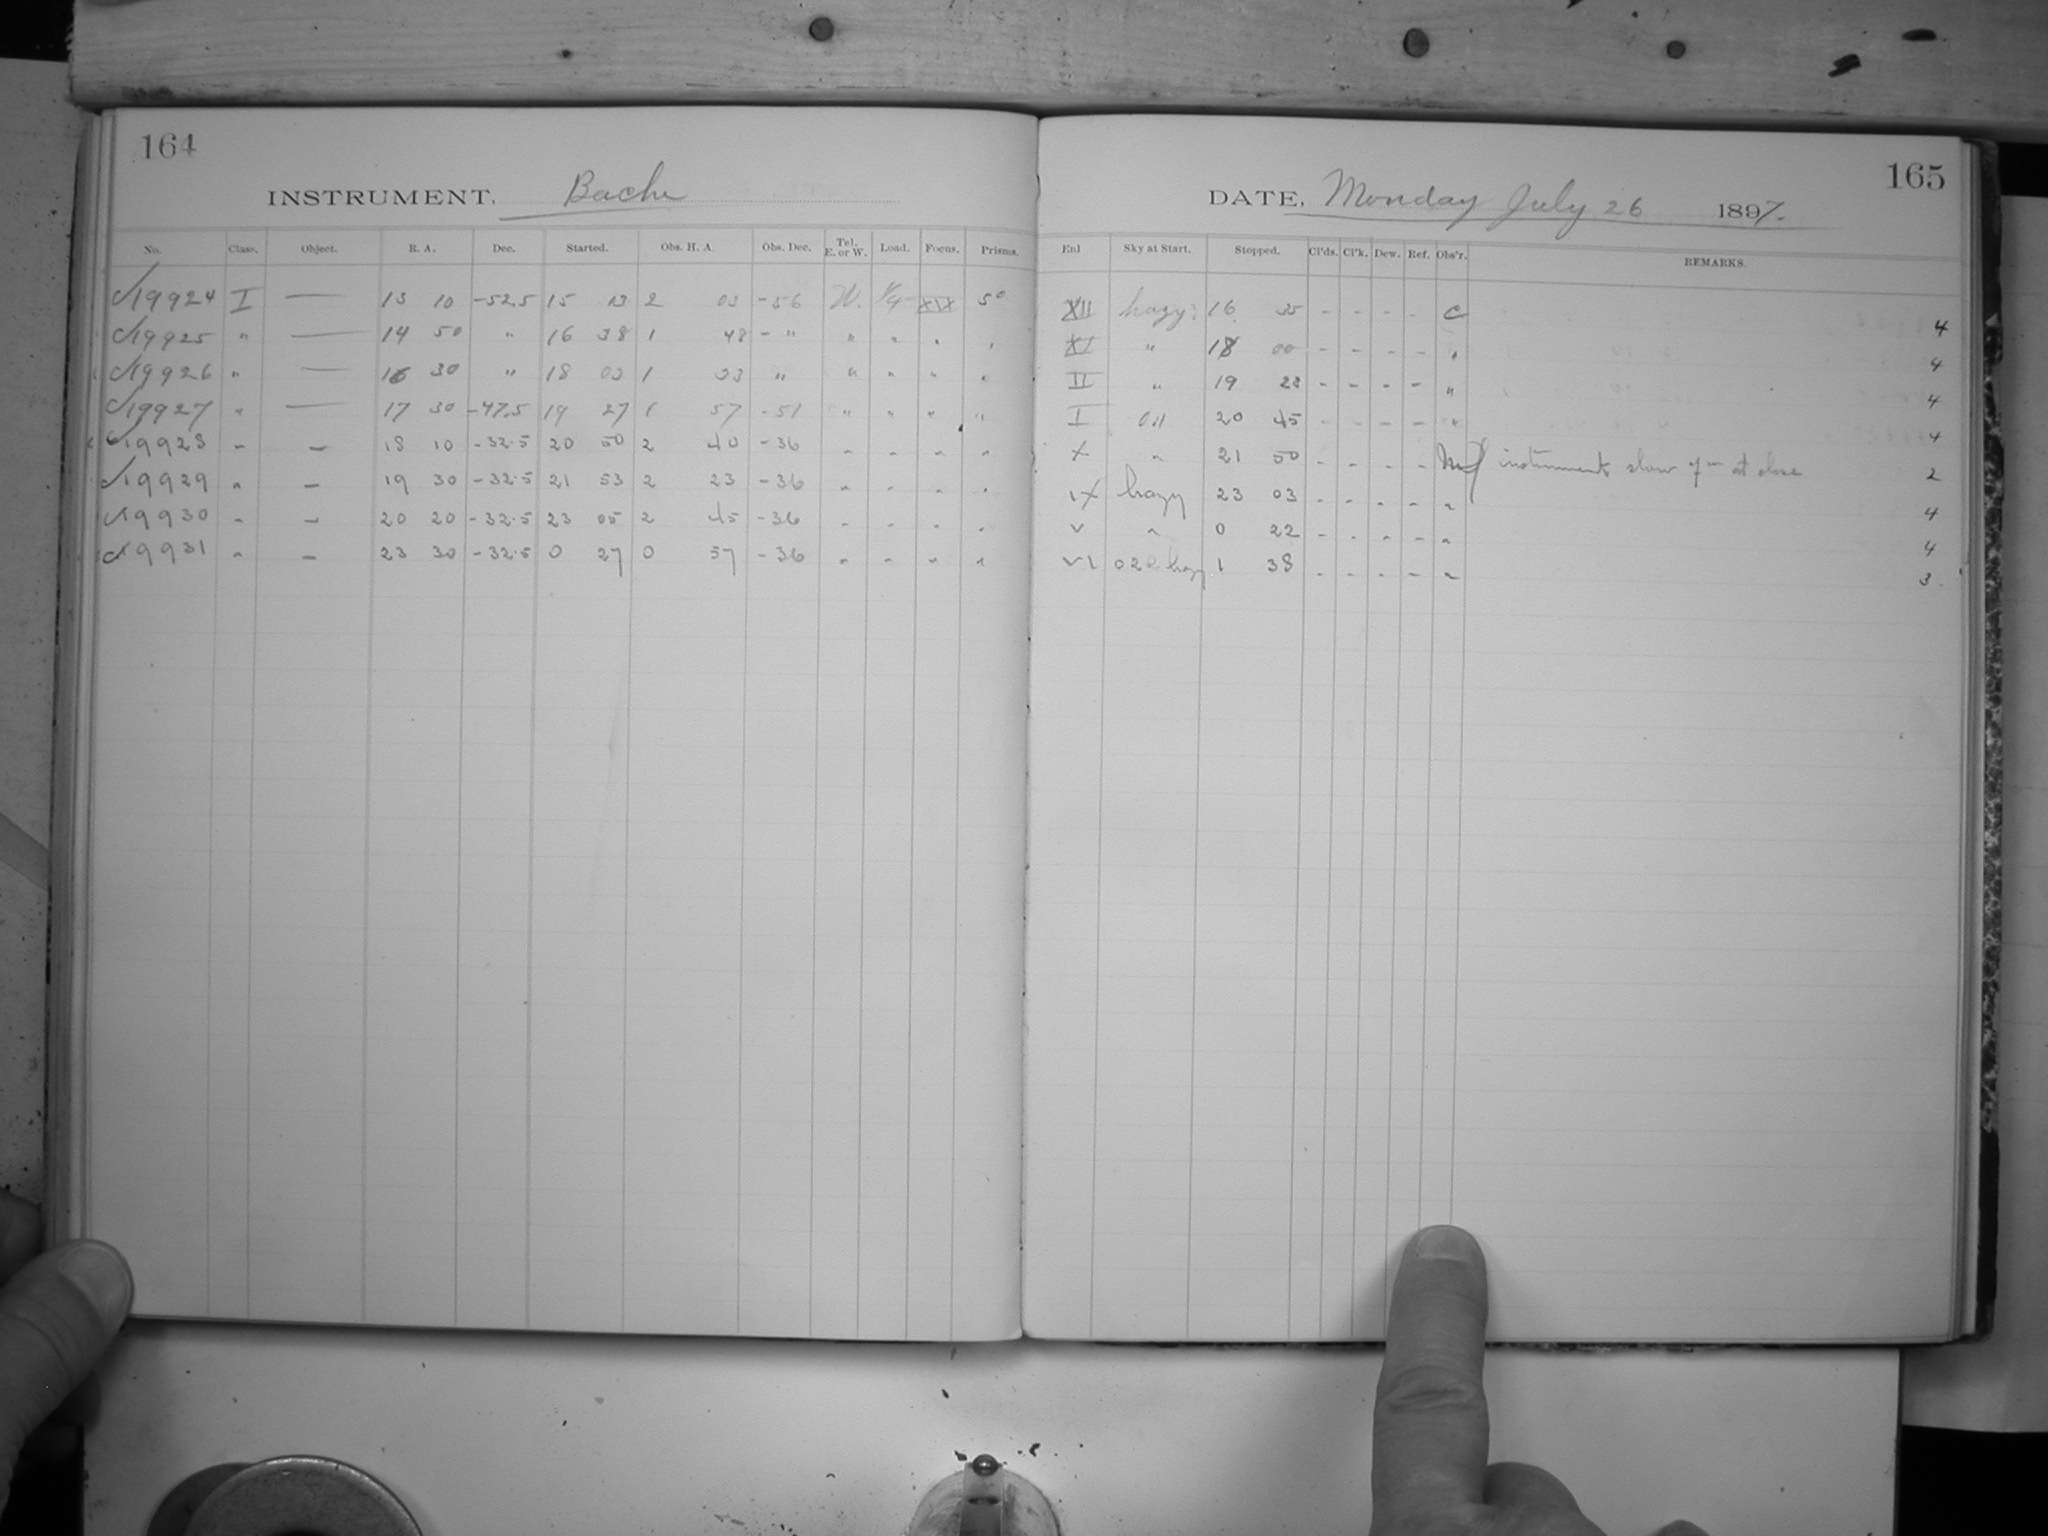 164
INSTRUMENT. Bache
No. Class. Object. R. A. Dec. Started. Obs. H. A. Obs. Dec. Tel. E. or W. Load. Focus. Prisms.
19924 I — 13 10 -52.5 15 13 2 03 -56 W. 1/4 XIX 5°
19925 " — 14 50 " 16 38 1 48 - " " " " "
19926 " — 16 30 " 18 03 1 33 " " " " "
19927 " — 17 30 -47.5 19 27 1 57 -51 " " " "
19928 " — 18 10 -32.5 20 50 2 40 -36 " " " "
19929 " — 19 30 -32.5 21 53 2 23 -36 " " " "
19930 " — 20 20 -32.5 23 05 2 45 -36 " " " "
19931 " — 23 30 -32.5 0 27 0 57 -36 " " " "
165
DATE, Monday July 26 1897.
Enl Sky at Start. Stopped. Cl'ds. Cl'k. Dew. Ref. Obs'r. REMARKS.
XII hazy 16 35 - - - - C 4
XI " 18 00 - - - - " 4
II " 19 23 - - - - " 4
I 20 45 - - - - " 4
X " 21 50 - - - - instrument slow at close 2
IX hazy 23 03 - - - - " 4
V " 0 22 - - - - " 4
VI hazy 1 38 - - - - " 3